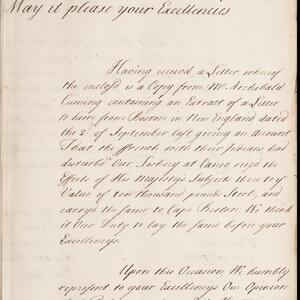 May it please your Excellencies
Having receivd a Letter whereof
the inclosd is a Copy from Mr. Archibald
Cuming containing an Extract of a Letter
to him from Boston in New England dated
the 2d of September last giving an Account
That the ffrench with their Indians had
disturbd Our Fishery at Canco, seizd the
Effects of His Majesty's Subjects there to ye
Value of ten thousand pound Sterl, and
carryd the same to Cape Breton. We think
it Our Duty to lay the same before your
Excellencys.
Upon this Occasion We humbly
represent to your Excellencys Our Opinion